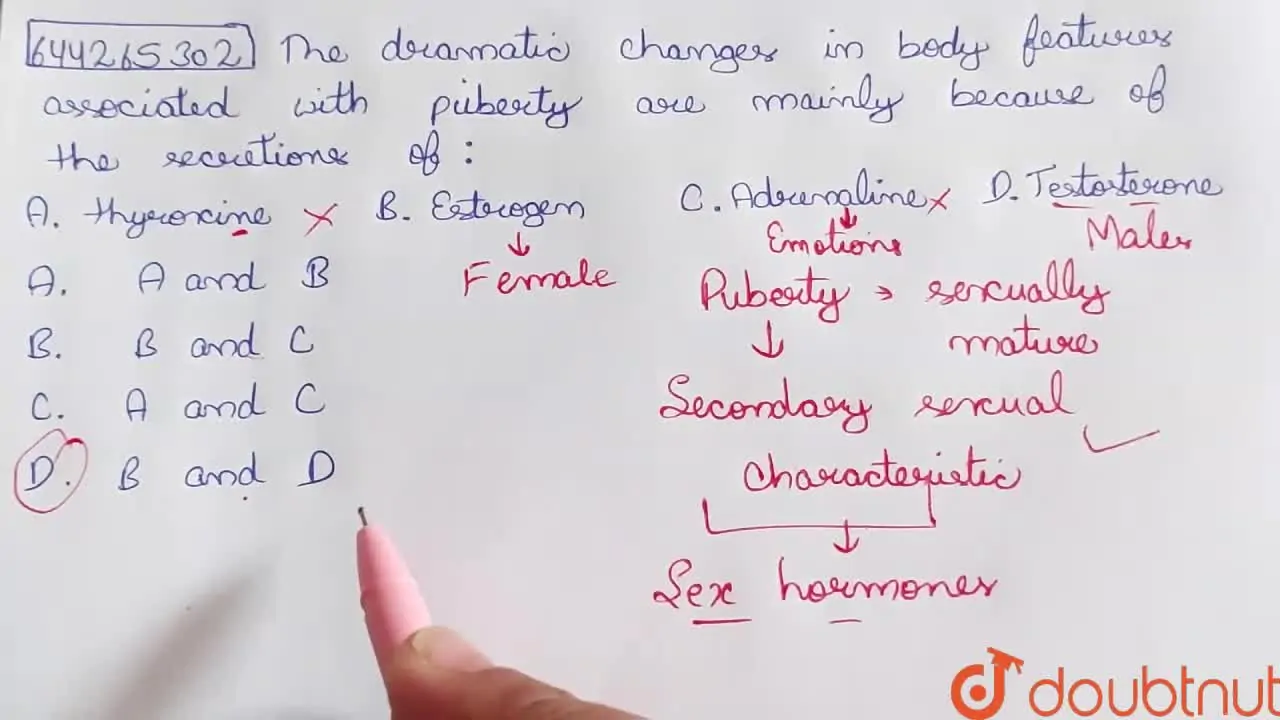 644265302 The dramatic changes in body features
associated with puberty are mainly because of
the secretions of :
A. thyroxine x B. Estrogen C. Adrenaline x D. Testosterone
↓ ↓
Female Emotions Males
A. A and B
B. B and C
C. A and C
D. B and D
Puberty → sexually
mature
↓
Secondary sexual
characteristic
↓
Sex hormones
doubtnut